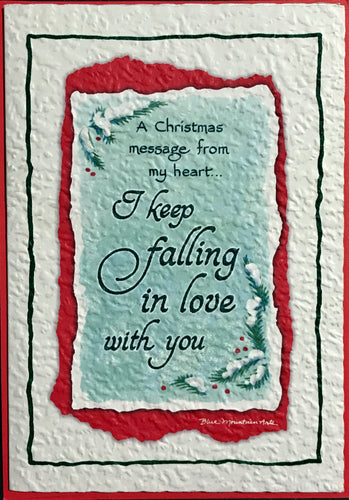 A Christmas
message from
my heart...
I keep
falling
in love
with you
Blue Mountain Arts